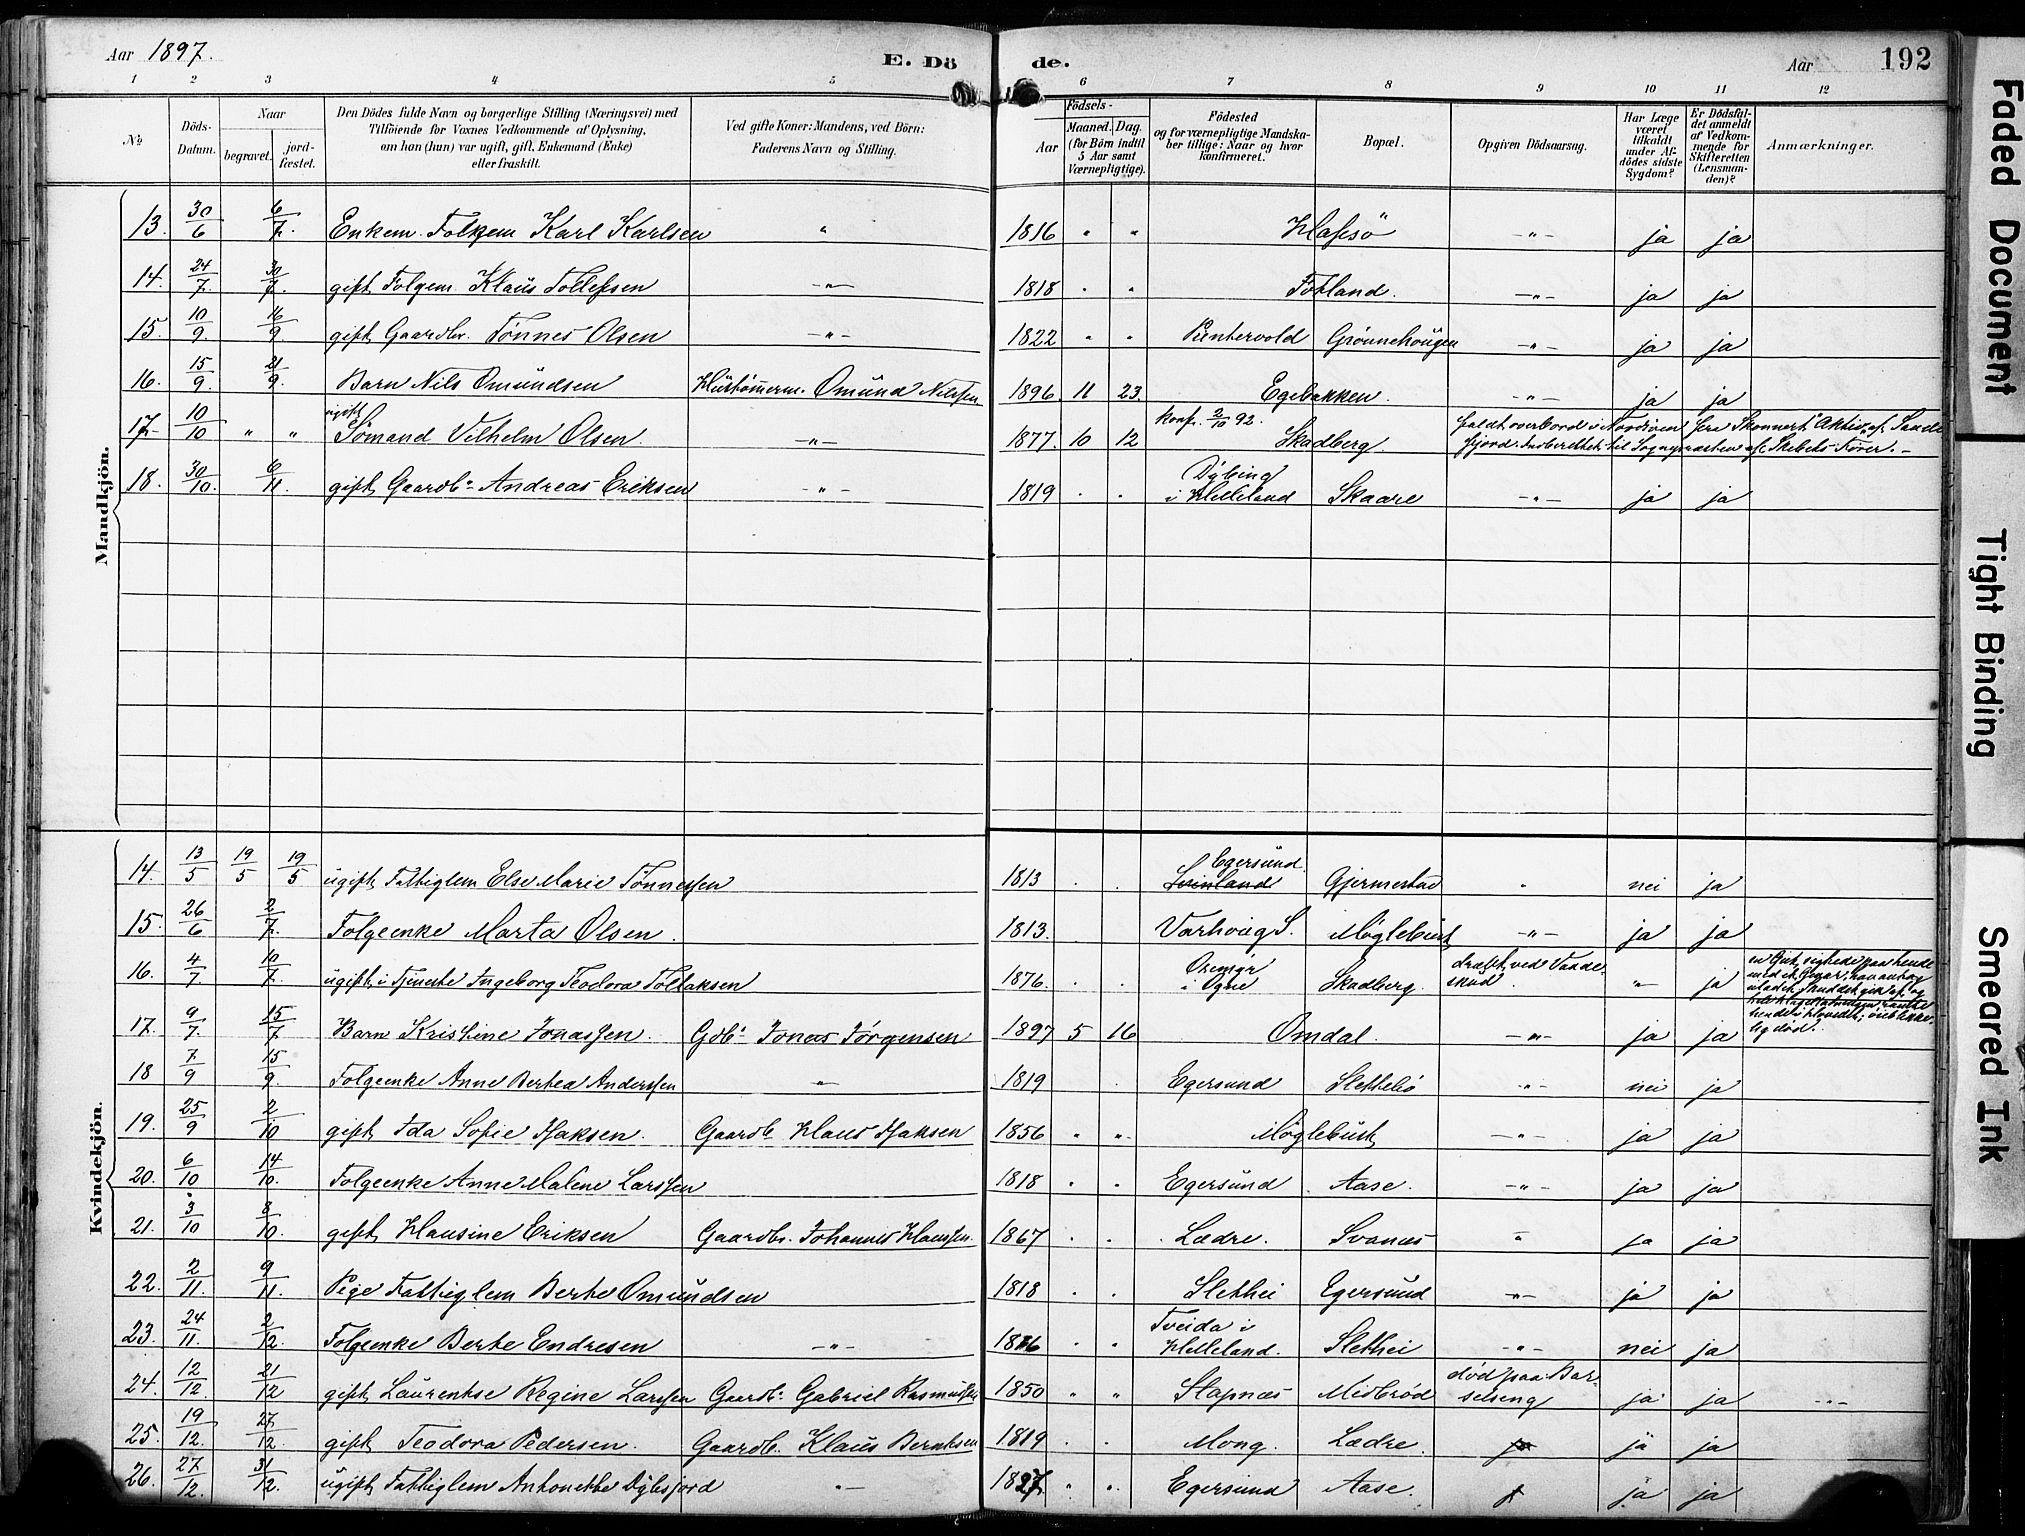 Aar 1897. E. Dö de. Aar 192
1 2 3 4 5 6 7 8 9 10 11 12
№ Döds-Datum. Naar begravet. jordfæstet. Den Dödes fulde Navn og borgerlige Stilling (Næringsvei) med Tilföiende for Voxnes Vedkommende af Oplysning, om han (hun) var ugift, gift, Enkemand (Enke) eller fraskilt. Ved gifte Koner: Mandens, ved Börn: Faderens Navn og Stilling. Födsels- Aar Maaned. Dag. (for Börn indtil 5 Aar samt Værnepligtige). Födested og for værnepligtige Mandskaber tillige: Naar og hvor konfirmeret. Bopæl. Opgiven Dödsaarsag. Har Læge været tilkaldt under Afdödes sidste Sygdom? Er Dödsfaldet anmeldt af Vedkommende for Skifteretten (Lensmanden)? Anmærkninger.
Mandkjön.
13. 30/6 6/7. Enkem. Folgem Karl Karlsen " 1816 " " Hafsö -"- ja ja
14. 24/7. 30/7. gift Folgem. Klaus Tollefsen -"- 1818 " " Fotland. -"- ja ja
15. 10/9. 16/9 gift Gaardbr. Tönnes Olsen -"- 1822 " " Puntervold Grönnehougen -"- ja ja
16. 15/9. 21/9. Barn Nils Omundsen Hustömerm. Omund Nilssen 1896 11 23. Egebakken. -"- ja ja
17. 10/10 " " ugift Sömand Vilhelm Olsen -"- 1877. 10 12 konf. 2/10 92. Skadberg. faldt overbord i Nordsöen fra Skonnert "Aktiv" af Sande-
fjord. Indberettet til Sognepræsten af Skibets Förer. -
18. 30/10. 6/11. gift Gaardbr Andreas Eriksen -"- 1819 . . Dybing i Helleland Skaare -"- ja ja
Kvindekjön.
14. 13/5 19/5 19/5 ugift Fattiglem Else Marie Tönnessen 1813 . . Egersund Gjermestad " nei ja
15. 26/6 2/7. Folgeenke Marta Olsen. 1813. Varhoug S. Möglebust -"- ja ja
16. 4/7. 10/7. ugift i Tjeneste Ingeborg Teodora Tollaksen 1876. . . i Ogne Skadberg. dræbt ved Vaade-
skud. -"- ja en Gut sigtede paa hende
med et Gevær, han antog
uladet, Skuddet gik af og
hende i Hovedet; öieblikke-
lig död.
17. 9/7. 15/7 Barn Kristine Jonassen. Gdbr Jonas Jörgensen 1897 5 16 Omdal. -"- ja ja
18 7/9 15/9. Folgeenke Anne Bertea Anderssen -"- 1819 . Egersund Slettebö -"- nei ja
19. 25/9 2/10 gift Ida Sofie Isaksen. Gaardb. Klaus Isaksen 1856 " " Möglebust -"- ja ja
20. 6/10 14/10. Folgeenke Anne Malene Larssen 1818 . . Egersund Aase. -"- ja ja
21. 3/10 8/10. gift Hansine Eriksen Gaardbr. Johannes Klaussen. 1867 . . Lædre. Svanes " ja ja
22. 2/11. 9/11. Pige Fattiglem Berte Omundsen 1818 . . Slethei Egersund -"- ja ja
23. 24/11. 2/12. Folgeenke Berte Endresen -"- 1816 . . Tveida i Helleland. Slethei -"- nei ja
24. 12/12. 21/12 gift Laurentse Regine Larssen Gaardbr. Gabriel Rasmussen 1850 " " Slapnæs Midbröd död paa Bar-
selseng ja ja -"-
25. 19/12. 27/12. gift Teodora Pedersen. Gaardb. Klaus Berntsen 1819 . . Mong. Lædre. ja ja
26. 27/12. 31/12. ugift Fattiglem Antonette Dybsjord -"- 1827. " " Egersund Aase. ja ja
Faded Document
Tight Binding
Smeared Ink